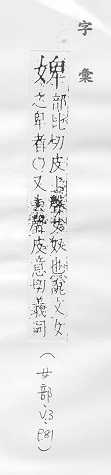 字彙
婢
部比切皮上聲女奴也說文女
之卑者〇又皮意切義同
(女部·V.3·P.81)